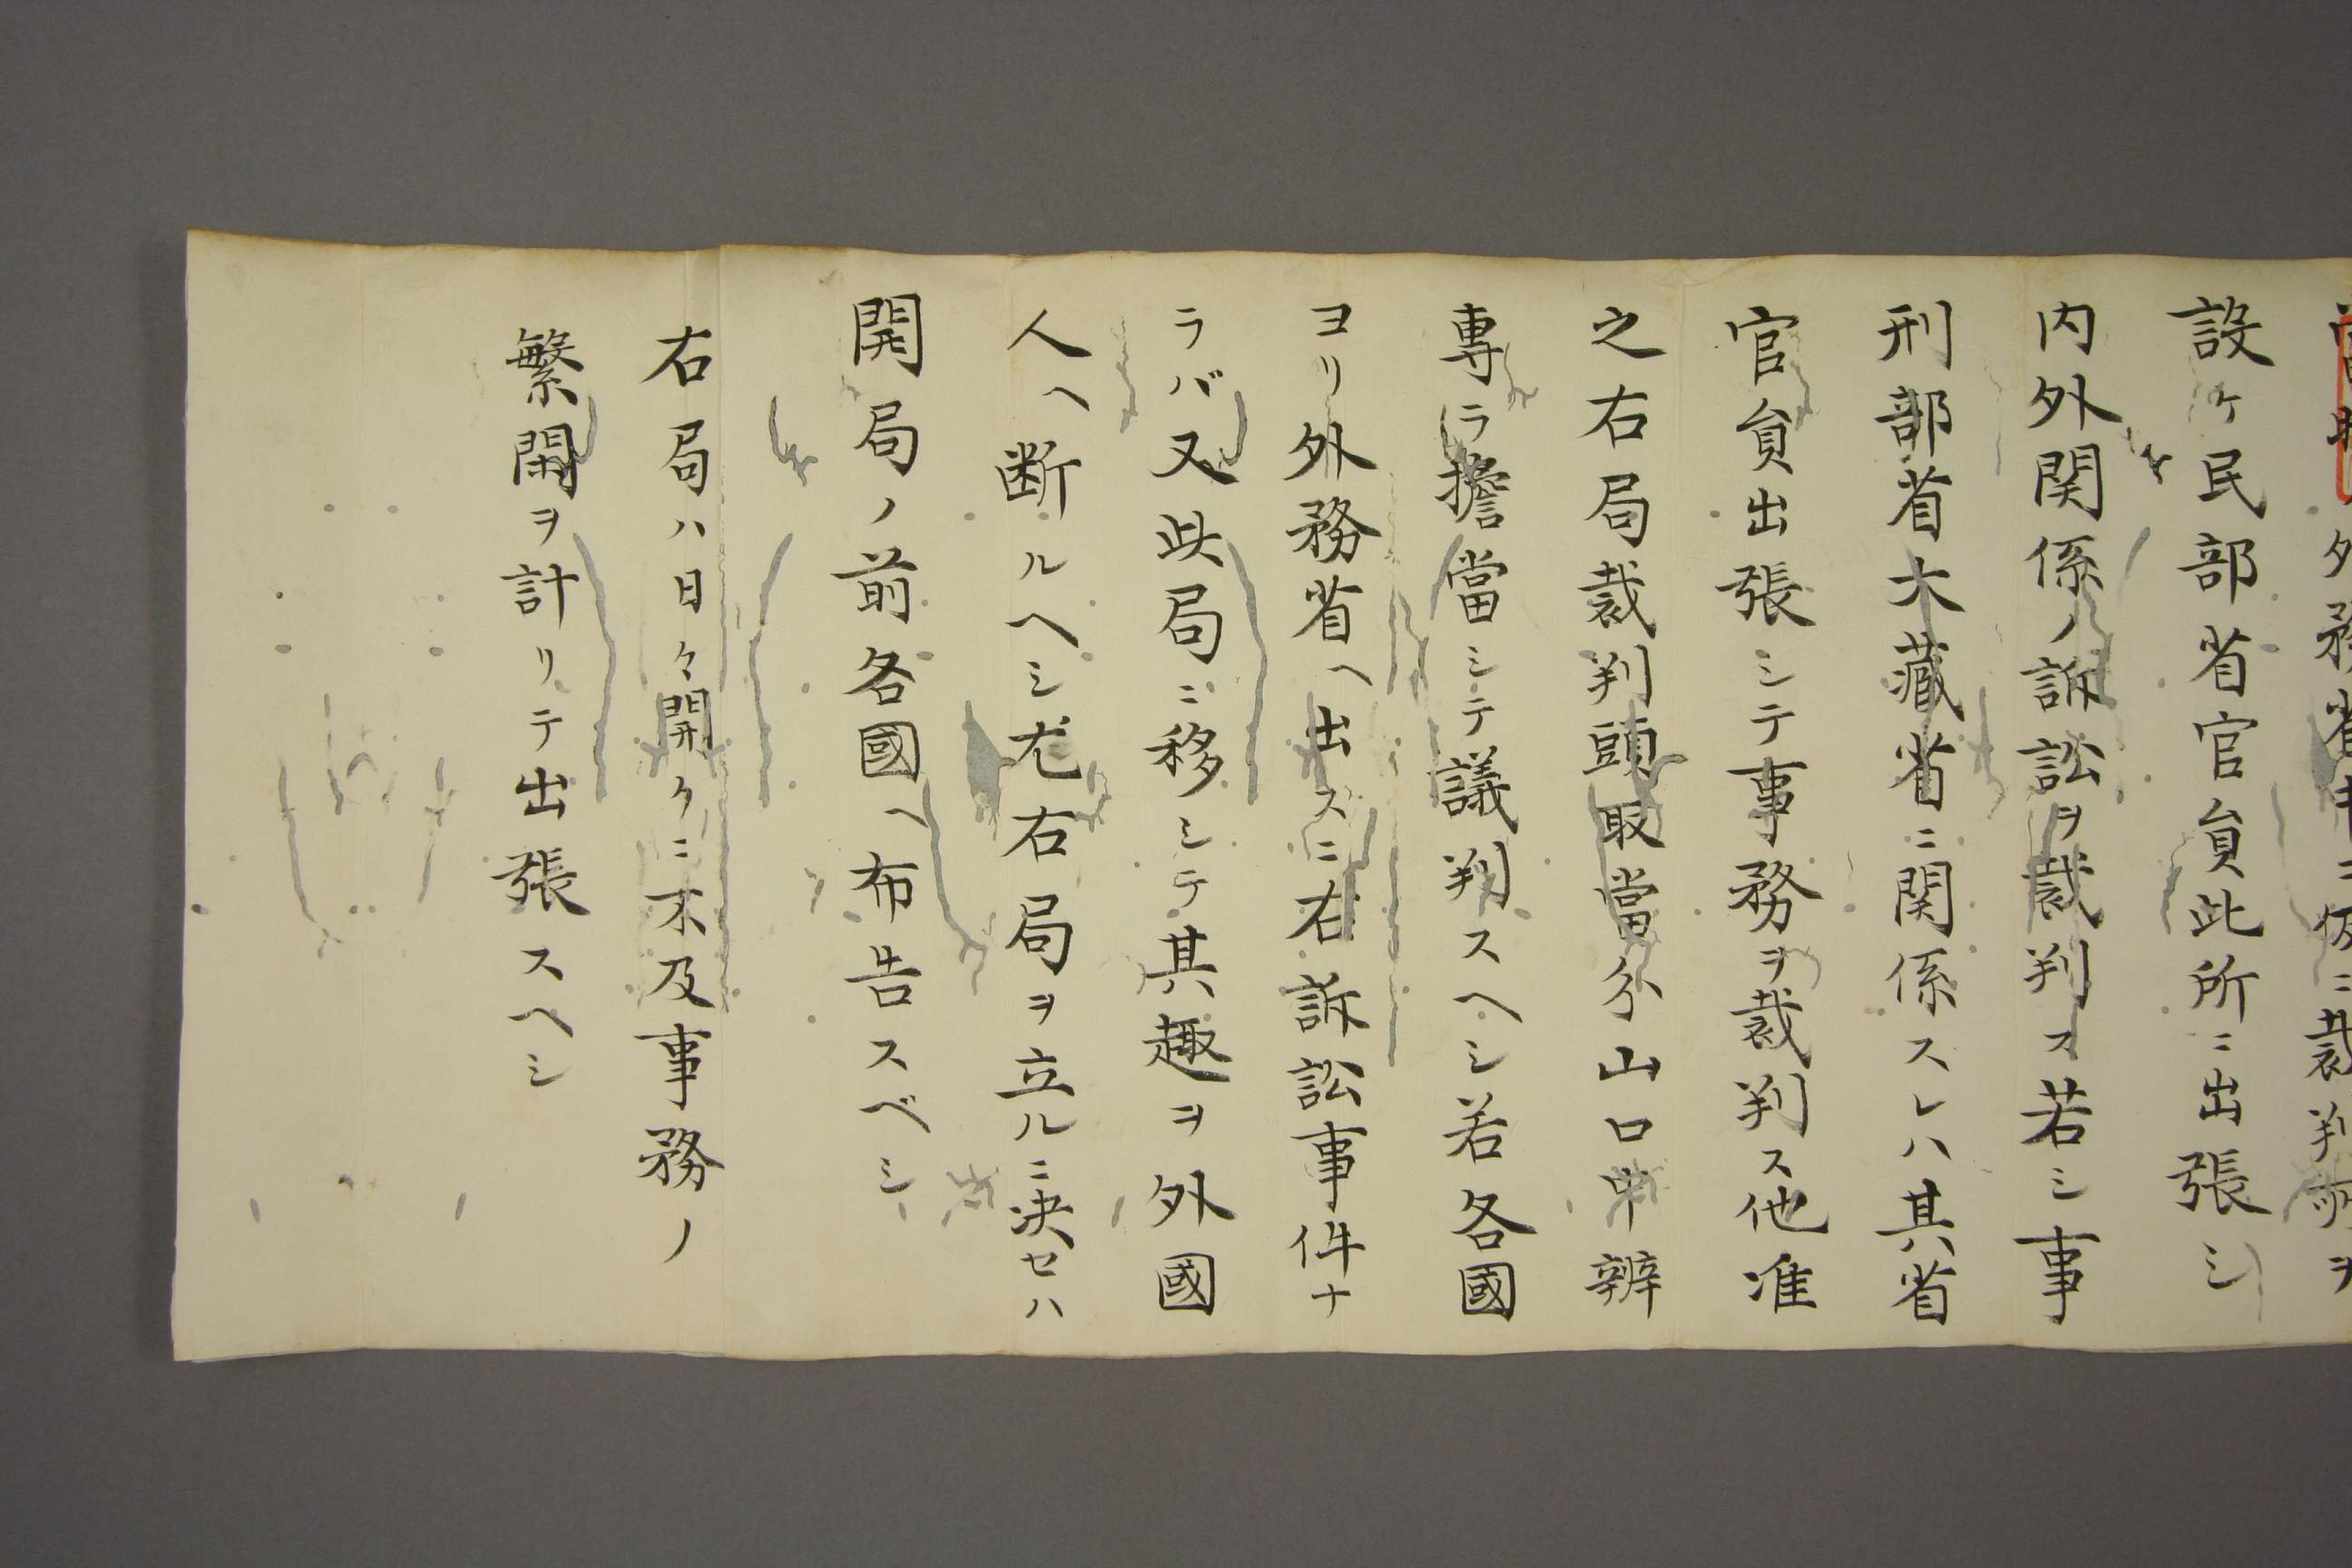 外務省中ニ仮ニ裁判所ヲ
設ケ民部省官員此所ニ出張シ
内外関係ノ訴訟ヲ裁判ス若シ事
刑部省大藏省ニ関係スレハ其省
官員出張シテ事務ヲ裁判ス他准
之右局裁判頭取當分山口中辨
専ラ擔當シテ議判スヘシ若各國
ヨリ外務省ヘ出スニ右訴訟事件ナ
ラバ又此局ニ移シテ其趣ヲ外國
人ヘ断ルヘシ尤右局ヲ立ルニ决セハ
開局ノ前各國ヘ布告スベシ
右局ハ日々開クニ不及事務ノ
繁閑ヲ計リテ出張スヘシ